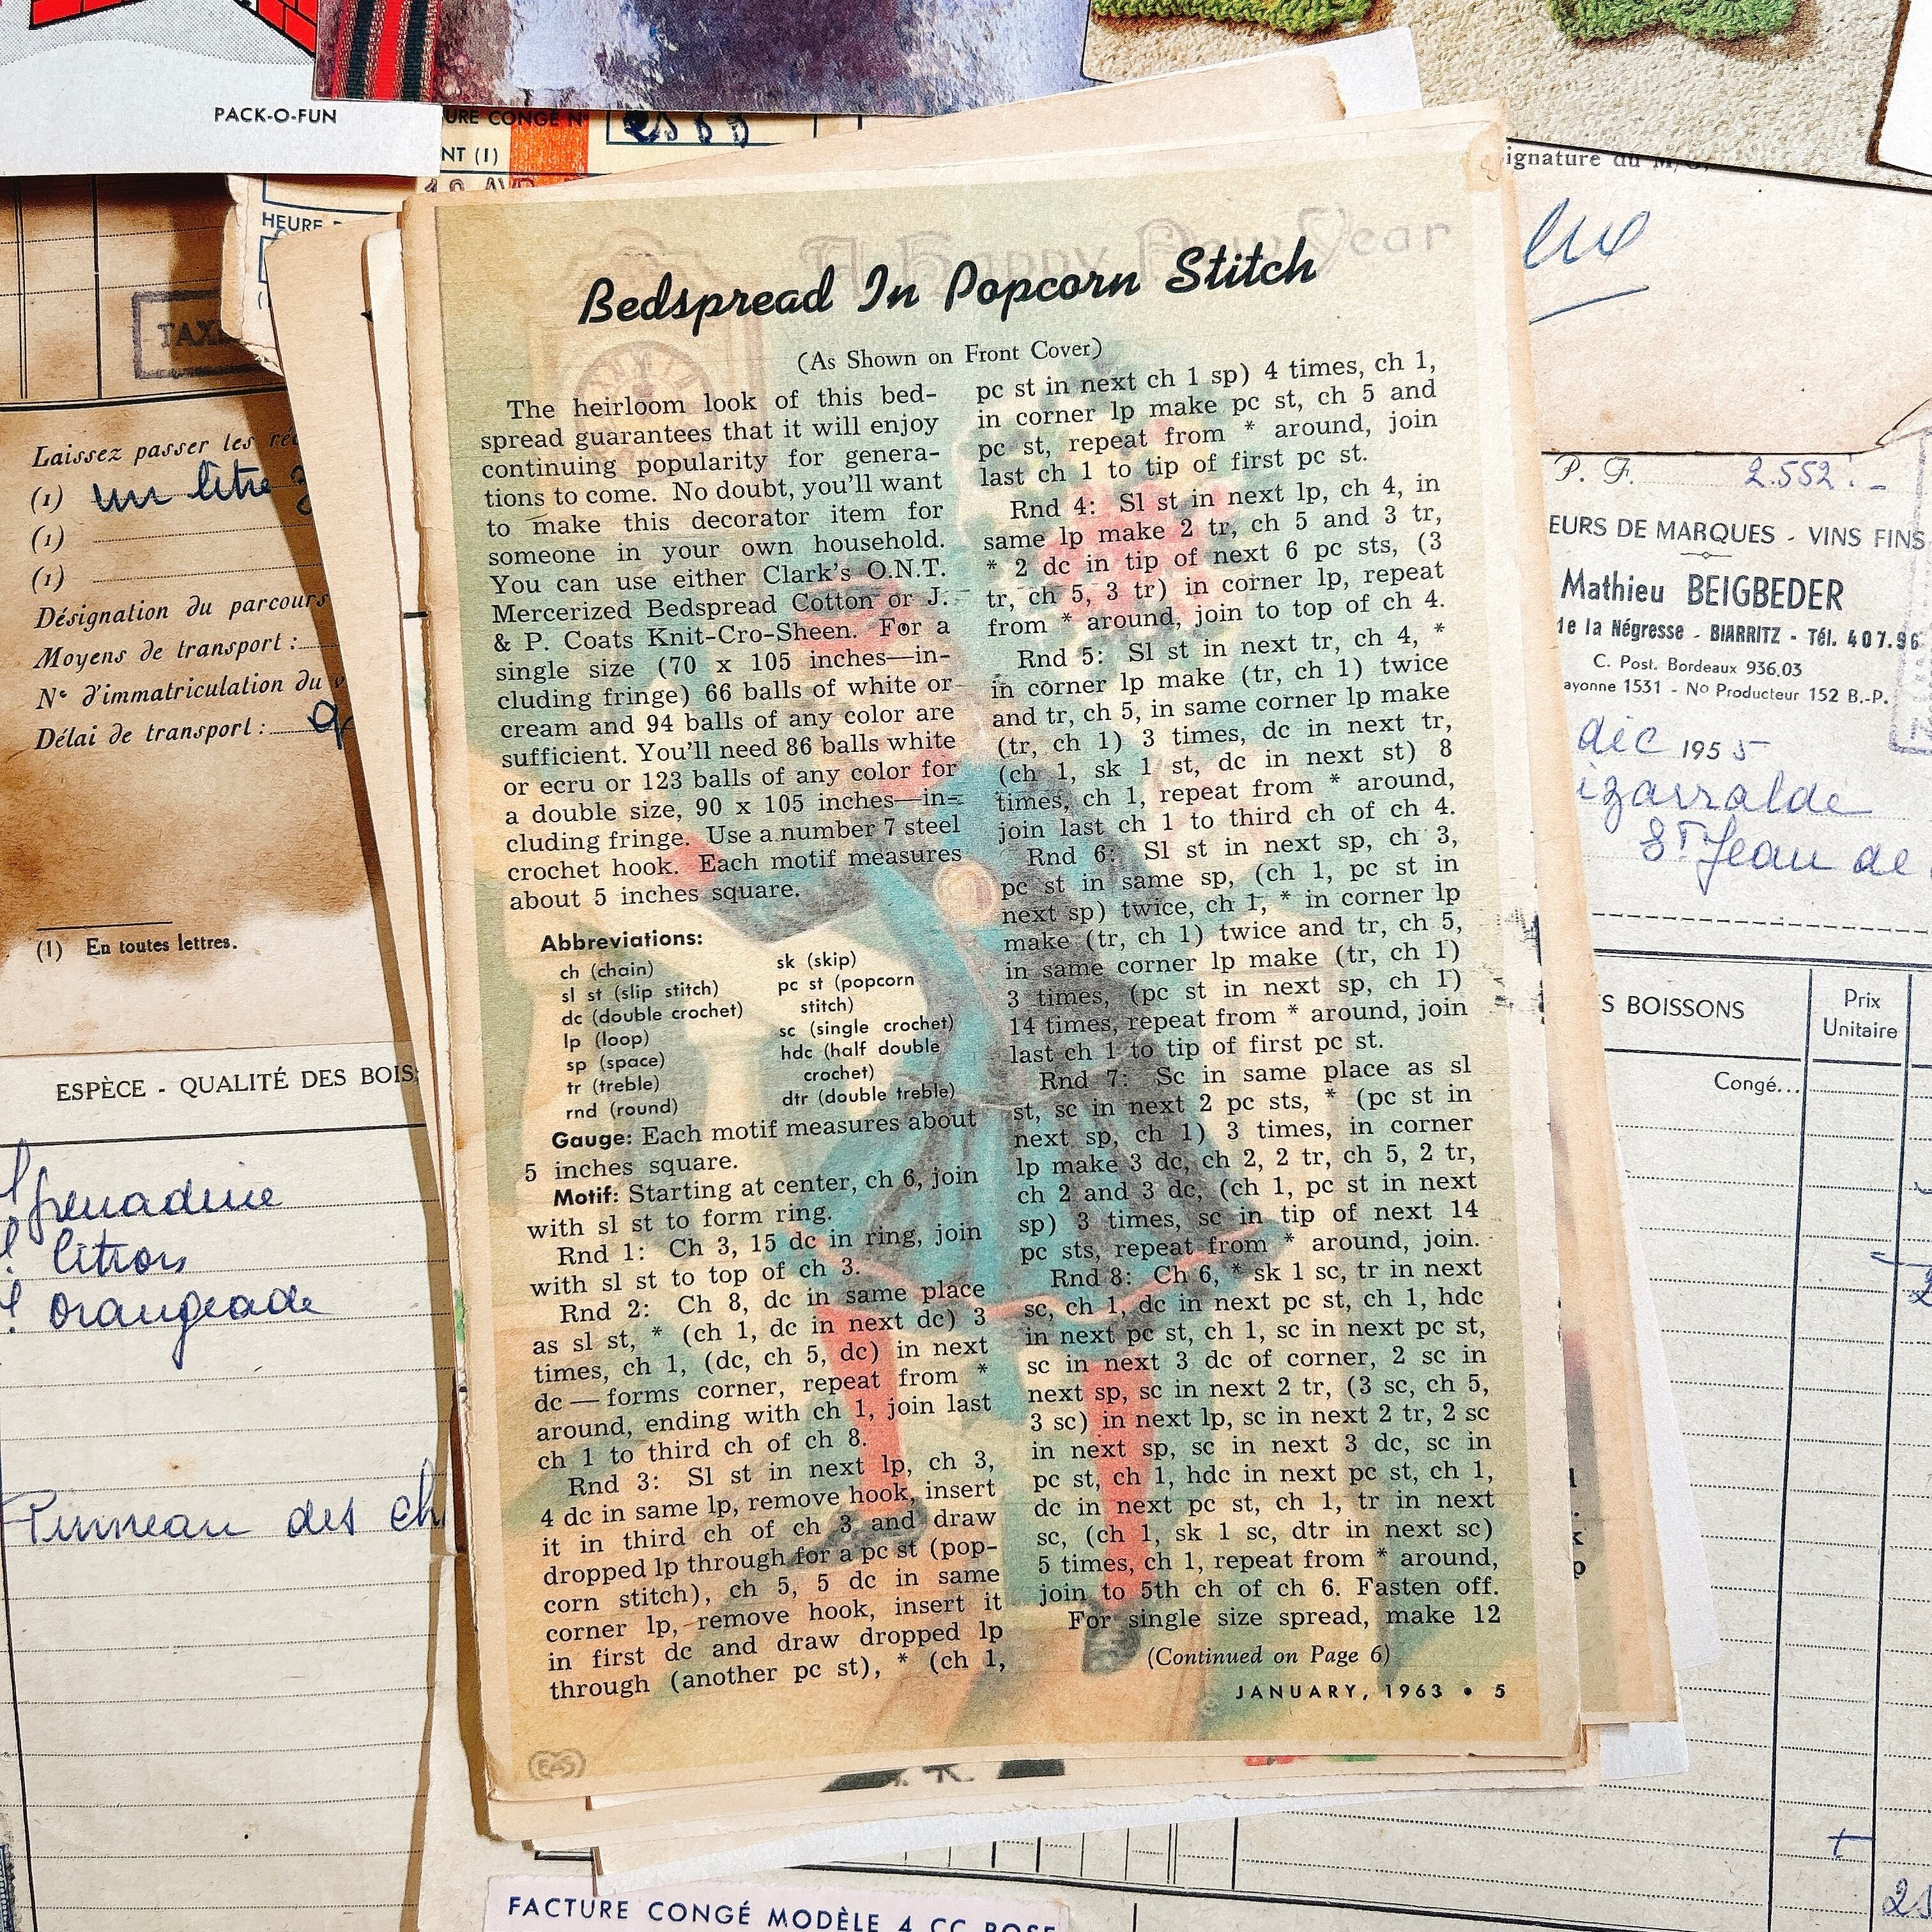 PACK-O-FUN
URE CONGÉ Nº
NT (1)
HEURE
TAX
Laissez passer les
(1) un litre
(1)
(1)
Désignation du parcours
Moyens de transport :
Nº d'immatriculation du v
Délai de transport :
(1) En toutes lettres.
ESPÈCE - QUALITÉ DES BOIS
grenadine
citron
orangeade
Pinneau des ch
A Happy New Year
Bedspread In Popcorn Stitch
(As Shown on Front Cover)
The heirloom look of this bed-
spread guarantees that it will enjoy
continuing popularity for genera-
tions to come. No doubt, you'll want
to make this decorator item for
someone in your own household.
You can use either Clark's O.N.T.
Mercerized Bedspread Cotton or J.
& P. Coats Knit-Cro-Sheen. For a
single size (70 x 105 inches—in-
cluding fringe) 66 balls of white or
cream and 94 balls of any color are
sufficient. You'll need 86 balls white
or ecru or 123 balls of any color for
a double size, 90 x 105 inches—in-
cluding fringe. Use a number 7 steel
crochet hook. Each motif measures
about 5 inches square.
Abbreviations:
ch (chain)
sl st (slip stitch)
dc (double crochet)
lp (loop)
sp (space)
tr (treble)
rnd (round)
sk (skip)
pc st (popcorn
stitch)
sc (single crochet)
hdc (half double
crochet)
dtr (double treble)
Gauge: Each motif measures about
5 inches square.
Motif: Starting at center, ch 6, join
with sl st to form ring.
Rnd 1: Ch 3, 15 dc in ring, join
with sl st to top of ch 3.
Rnd 2: Ch 8, dc in same place
as sl st, * (ch 1, dc in next dc) 3
times, ch 1, (dc, ch 5, dc) in next
dc — forms corner, repeat from *
around, ending with ch 1, join last
ch 1 to third ch of ch 8.
Rnd 3: Sl st in next lp, ch 3,
4 dc in same lp, remove hook, insert
it in third ch of ch 3 and draw
dropped lp through for a pc st (pop-
corn stitch), ch 5, 5 dc in same
corner lp, remove hook, insert it
in first dc and draw dropped lp
through (another pc st), * (ch 1,
pc st in next ch 1 sp) 4 times, ch 1,
in corner lp make pc st, ch 5 and
pc st, repeat from * around, join
last ch 1 to tip of first pc st.
Rnd 4: Sl st in next lp, ch 4, in
same lp make 2 tr, ch 5 and 3 tr,
* 2 dc in tip of next 6 pc sts, (3
tr, ch 5, 3 tr) in corner lp, repeat
from * around, join to top of ch 4.
Rnd 5: Sl st in next tr, ch 4, *
in corner lp make (tr, ch 1) twice
and tr, ch 5, in same corner lp make
(tr, ch 1) 3 times, dc in next tr,
(ch 1, sk 1 st, dc in next st) 8
times, ch 1, repeat from * around,
join last ch 1 to third ch of ch 4.
Rnd 6: Sl st in next sp, ch 3,
pc st in same sp, (ch 1, pc st in
next sp) twice, ch 1, * in corner lp
make (tr, ch 1) twice and tr, ch 5,
in same corner lp make (tr, ch 1)
3 times, (pc st in next sp, ch 1)
14 times, repeat from * around, join
last ch 1 to tip of first pc st.
Rnd 7: Sc in same place as sl
st, sc in next 2 pc sts, * (pc st in
next sp, ch 1) 3 times, in corner
lp make 3 dc, ch 2, 2 tr, ch 5, 2 tr,
ch 2 and 3 dc, (ch 1, pc st in next
sp) 3 times, sc in tip of next 14
pc sts, repeat from * around, join.
Rnd 8: Ch 6, * sk 1 sc, tr in next
sc, ch 1, dc in next pc st, ch 1, hdc
in next pc st, ch 1, sc in next pc st,
sc in next 3 dc of corner, 2 sc in
next sp, sc in next 2 tr, (3 sc, ch 5,
3 sc) in next lp, sc in next 2 tr, 2 sc
in next sp, sc in next 3 dc, sc in
pc st, ch 1, hdc in next pc st, ch 1,
dc in next pc st, ch 1, tr in next
sc, (ch 1, sk 1 sc, dtr in next sc)
5 times, ch 1, repeat from * around,
join to 5th ch of ch 6. Fasten off.
For single size spread, make 12
(Continued on Page 6)
JANUARY, 1963 • 5
EAS
ignature du
P. F. 2.552. -
EURS DE MARQUES - VINS FINS
Mathieu BEIGBEDER
de la Négresse - BIARRITZ - Tél. 407.96
C. Post. Bordeaux 936,03
ayonne 1531 - Nº Producteur 152 B.-P.
dic 1955
izarralde
St Jean de
S BOISSONS
Prix
Unitaire
Congé...
FACTURE CONGÉ MODÈLE 4 CC ROSE